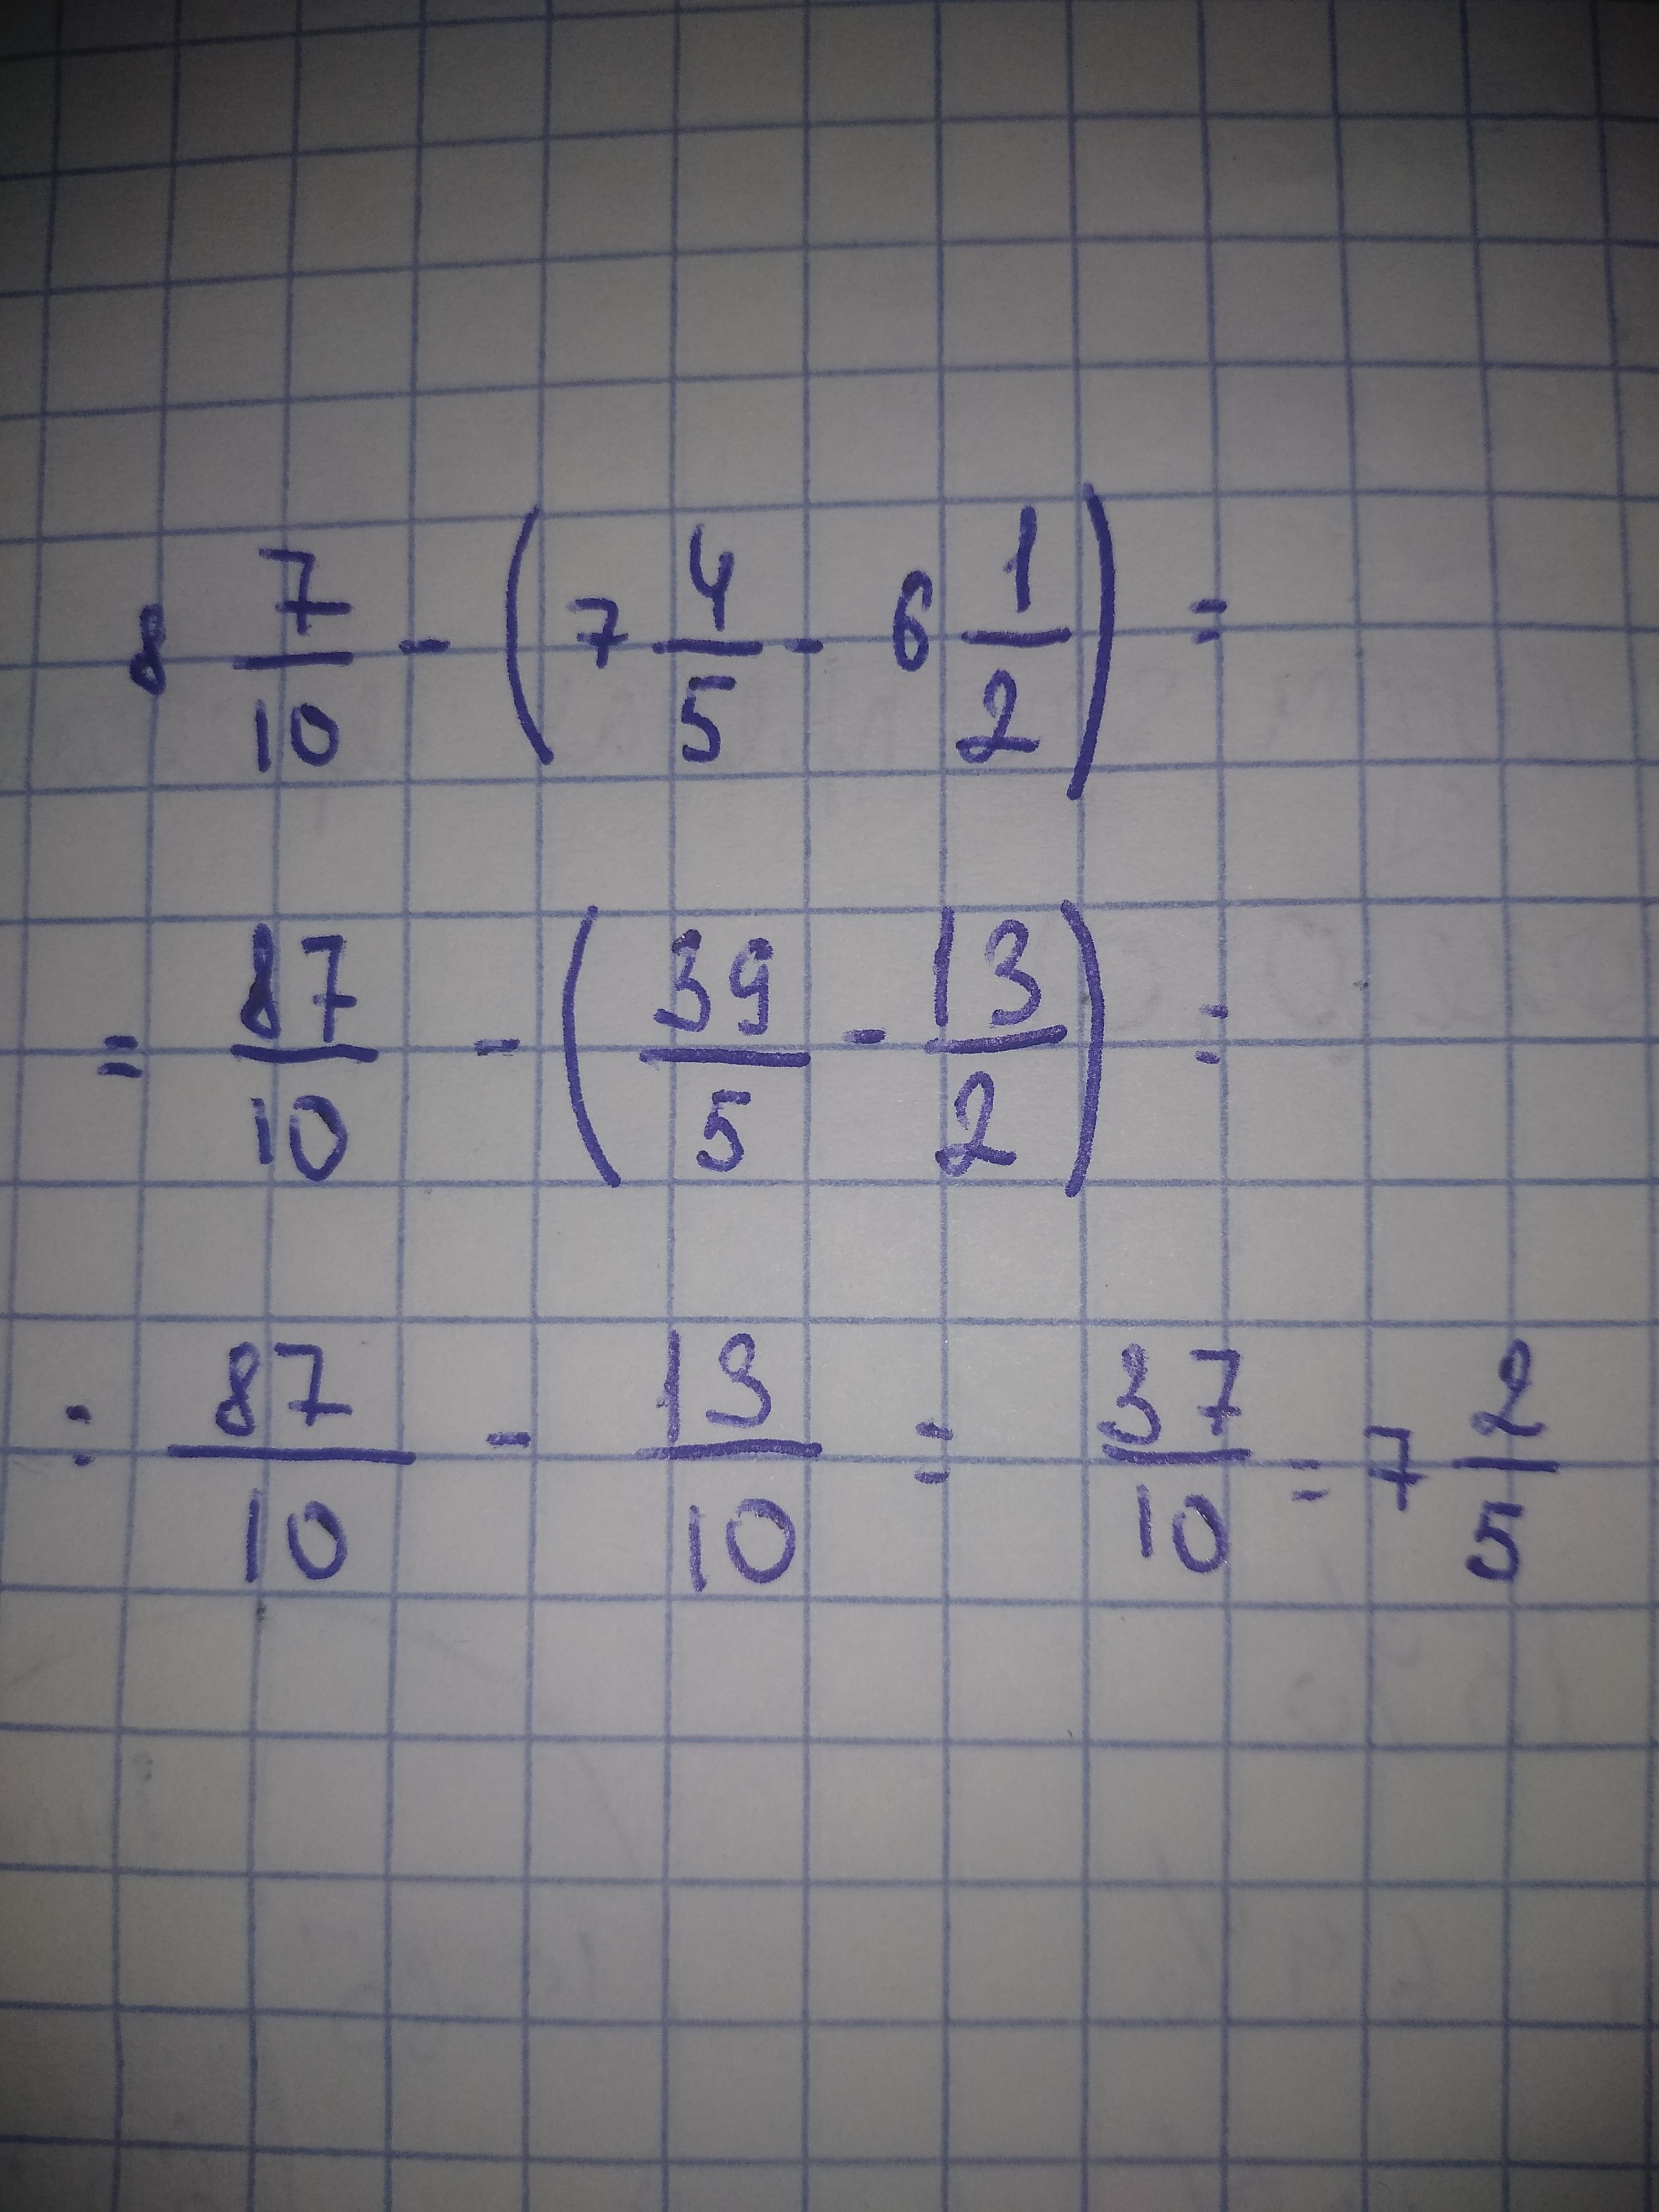 8 7/10 - (7 4/5 - 6 1/2) =
= 87/10 - (39/5 - 13/2) =
= 87/10 - 13/10 = 37/10 = 7 2/5